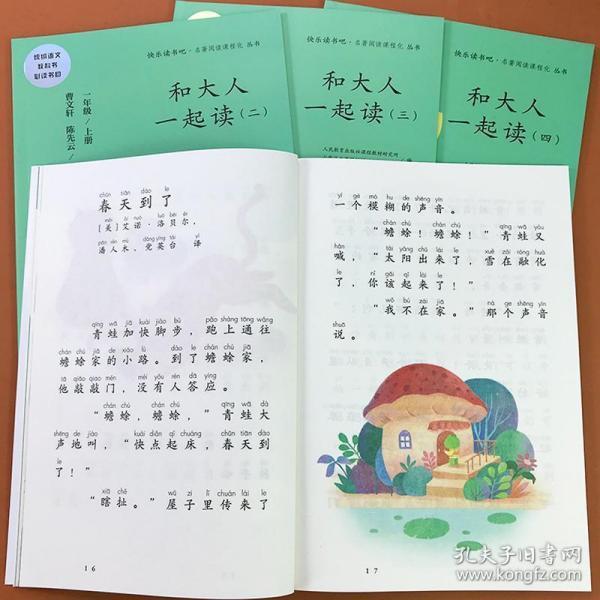 统编语文
教科书
必读书目
一年级/上册
曹文轩 陈先云/
和大人
一起读(二)
快乐读书吧·名著阅读课程化 丛书
和大人
一起读(三)
人民教育出版社课程教材研究所
快乐读书吧·名著阅读课程化 丛书
和大人
一起读(四)
chūn tiān dào le
春天到了
měi ài nuò luò bèi ěr
[美]艾诺·洛贝尔,
pān rén mù dǎng yīng tái yì
潘人木、党英台 译
qīng wā jiā kuài jiǎo bù pǎo shàng tōng wǎng
青蛙加快脚步,跑上通往
chán chú jiā de xiǎo lù dào le chán chú jiā
蟾蜍家的小路。到了蟾蜍家,
tā qiāo qiāo mén méi yǒu rén dā yìng
他敲敲门,没有人答应。
chán chú chán chú qīng wā dà
“蟾蜍,蟾蜍,”青蛙大
shēng de jiào kuài diǎn qǐ chuáng chūn tiān dào
声地叫,“快点起床,春天到
le
了!”
xiā chě wū zi lǐ chuán lái le
“瞎扯。”屋子里传来了
16
yí gè mó hu de shēng yīn
一个模糊的声音。
chán chú chán chú qīng wā yòu
“蟾蜍!蟾蜍!”青蛙又
hǎn tài yáng chū lái le xuě zài róng huà
喊,“太阳出来了,雪在融化
le nǐ gāi qǐ lái le
了,你该起来了!”
wǒ bú zài jiā nà ge shēng yīn
“我不在家。”那个声音
shuō
说。
17
孔夫子旧书网
www.kongfz.com